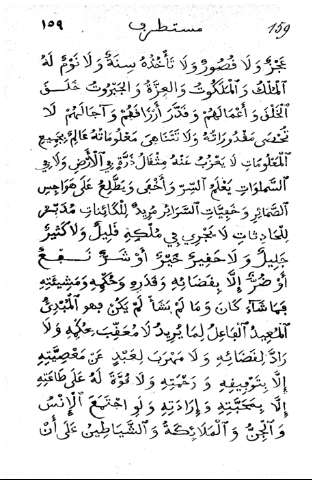 ١٥٩ مستطرف 159
عَجْزٌ وَلَا قُصُورٌ وَلَا تَأْخُذُهُ سِنَةٌ وَلَا نَوْمٌ لَهُ
الْمُلْكُ وَالْمَلَكُوتُ وَالْعِزَّةُ وَالْجَبَرُوتُ خَلَقَ
الْخَلْقَ وَأَعْمَالَهُمْ وَقَدَّرَ أَرْزَاقَهُمْ وَآجَالَهُمْ لَا
تُحْصَى مَقْدُورَاتُهُ وَلَا تَتَنَاهَى مَعْلُومَاتُهُ عَالِمٌ بِجَمِيعِ
الْمَعْلُومَاتِ لَا يَعْزُبُ عَنْهُ مِثْقَالُ ذَرَّةٍ فِي الْأَرْضِ وَلَا فِي
السَّمَاوَاتِ يَعْلَمُ السِّرَّ وَأَخْفَى وَيَطَّلِعُ عَلَى هَوَاجِسِ
الضَّمَائِرِ وَخَفِيَّاتِ السَّرَائِرِ مُرِيدٌ لِلْكَائِنَاتِ مُدَبِّرٌ
لِلْحَادِثَاتِ لَا يَجْرِي فِي مُلْكِهِ قَلِيلٌ وَلَا كَثِيرٌ
جَلِيلٌ وَلَا حَقِيرٌ خَيْرٌ أَوْ شَرٌّ نَفْعٌ
أَوْ ضُرٌّ إِلَّا بِقَضَائِهِ وَقَدَرِهِ وَحُكْمِهِ وَمَشِيئَتِهِ
فَمَا شَاءَ كَانَ وَمَا لَمْ يَشَأْ لَمْ يَكُنْ فَهُوَ الْمُبْدِئُ
الْمُعِيدُ الْفَاعِلُ لِمَا يُرِيدُ لَا مُعَقِّبَ لِحُكْمِهِ وَلَا
رَادَّ لِقَضَائِهِ وَلَا مَهْرَبَ لِعَبْدٍ عَنْ مَعْصِيَتِهِ
إِلَّا بِتَوْفِيقِهِ وَرَحْمَتِهِ وَلَا قُوَّةَ لَهُ عَلَى طَاعَتِهِ
إِلَّا بِمَحَبَّتِهِ وَإِرَادَتِهِ وَلَوِ اجْتَمَعَ الْإِنْسُ
وَالْجِنُّ وَالْمَلَائِكَةُ وَالشَّيَاطِينُ عَلَى أَنْ